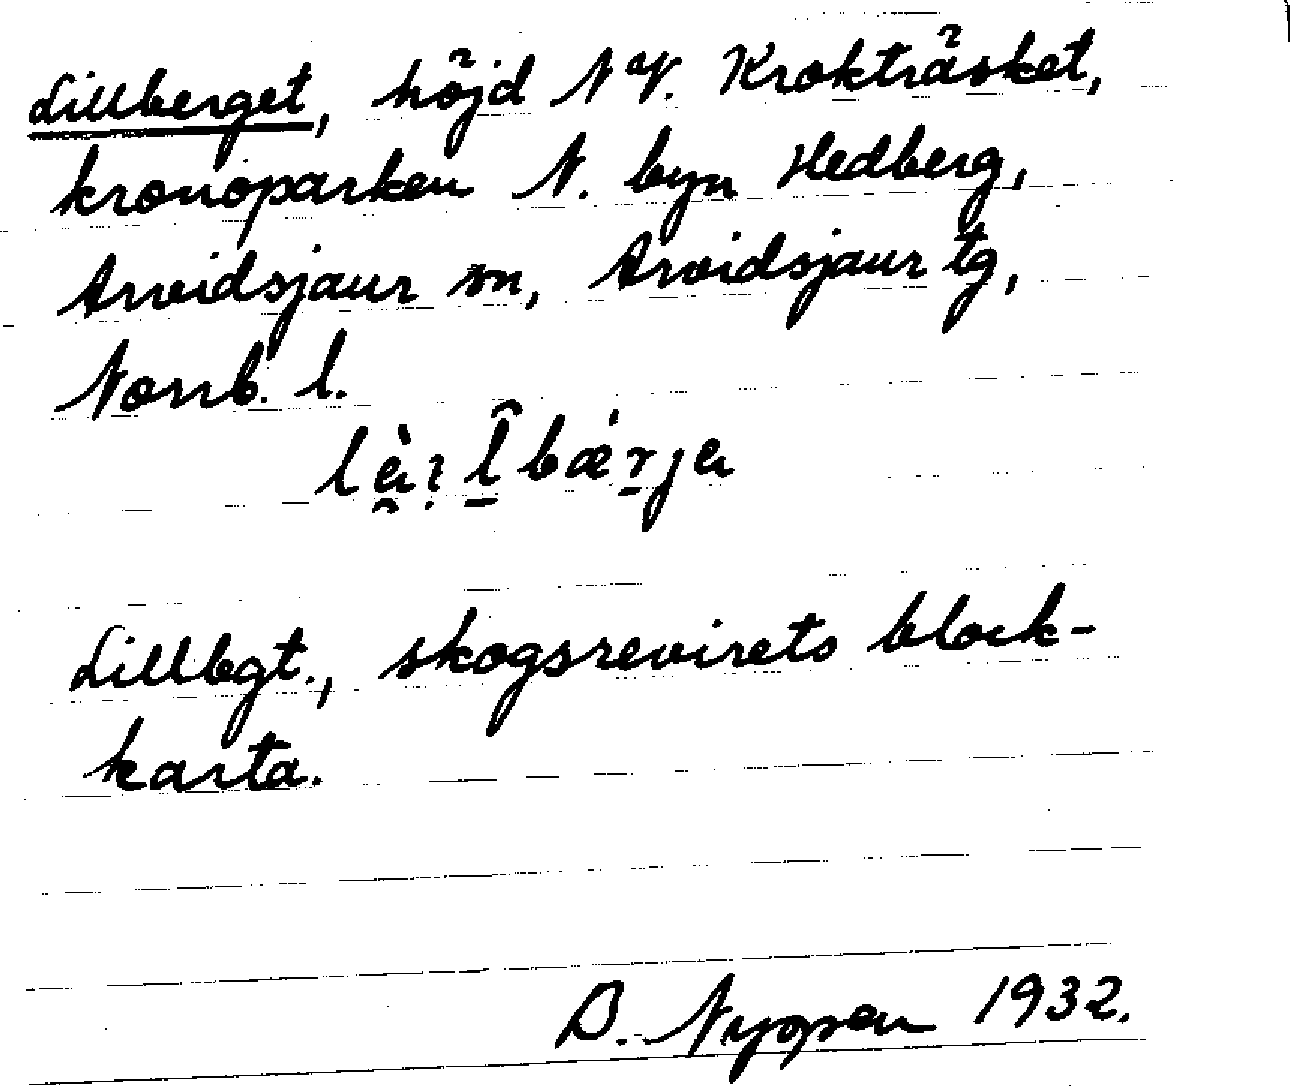 Lillberget, höjd NV. Krokträsket,
kronoparken N. byn Hedberg,
Arvidsjaur sn, Arvidsjaur tg,
Norrb. l.
Lillbgt., skogsrevirets block-
karta.
B. Nyopen 1932.